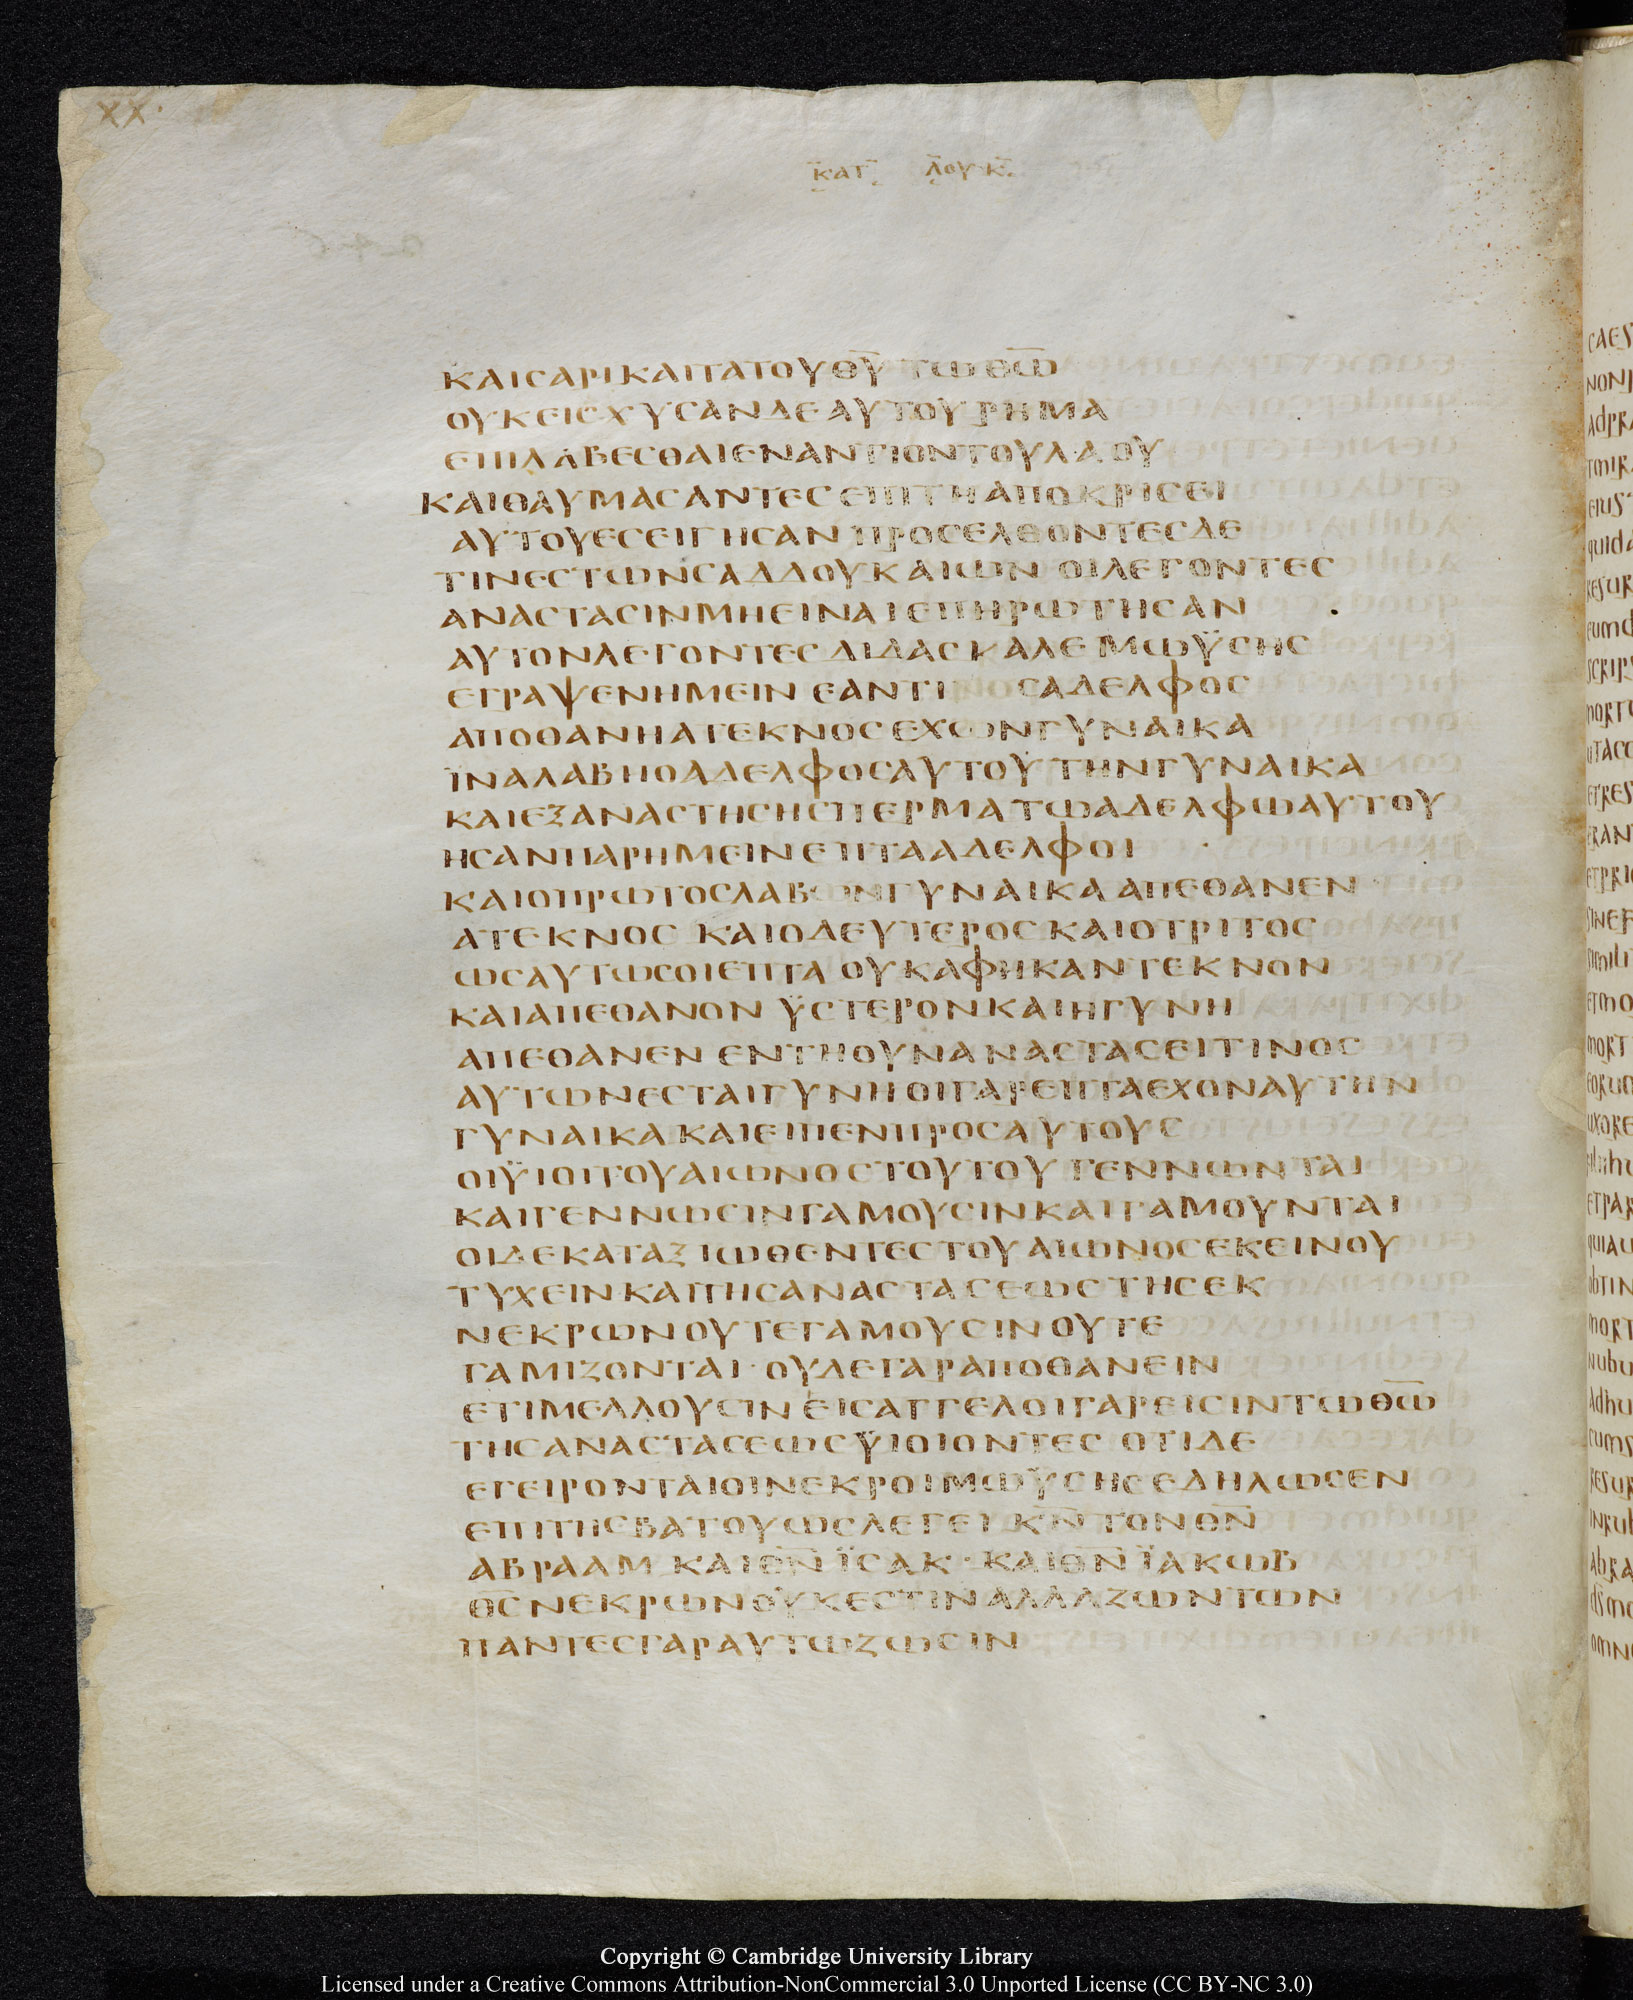 XX.
ΚΑΤ ΛΟΥΚ
ΚΑΙϹΑΡΙΚΑΙΤΑΤΟΥΘ̅Υ̅ ΤΩΘ̅Ω̅
ΟΥΚΕΙϹΧΥϹΑΝΔΕΑΥΤΟΥΡΗΜΑ
ΕΠΙΛΑΒΕϹΘΑΙΕΝΑΝΤΙΟΝΤΟΥΛΑΟΥ
ΚΑΙΘΑΥΜΑϹΑΝΤΕϹΕΠΙΤΗΑΠΟΚΡΙϹΕΙ
ΑΥΤΟΥΕϹΕΙΓΗϹΑΝ ΠΡΟϹΕΛΘΟΝΤΕϹΔΕ
ΤΙΝΕϹΤΩΝϹΑΔΔΟΥΚΑΙΩΝ ΟΙΛΕΓΟΝΤΕϹ
ΑΝΑϹΤΑϹΙΝΜΗΕΙΝΑΙΕΠΗΡΩΤΗϹΑΝ
ΑΥΤΟΝΛΕΓΟΝΤΕϹΔΙΔΑϹΚΑΛΕΜΩΫϹΗϹ
ΕΓΡΑΨΕΝΗΜΕΙΝ ΕΑΝΤΙ ϹΑΔΕΛΦΟϹ
ΑΠΟΘΑΝΗΑΤΕΚΝΟϹΕΧΩΝΓΥΝΑΙΚΑ
ΪΝΑΛΑΒΗΟΑΔΕΛΦΟϹΑΥΤΟΥΤΗΝΓΥΝΑΙΚΑ
ΚΑΙΕΞΑΝΑϹΤΗϹΗϹΠΕΡΜΑΤΩΑΔΕΛΦΩΑΥΤΟΥ
ΗϹΑΝΠΑΡΗΜΕΙΝΕΠΤΑΑΔΕΛΦΟΙ
ΚΑΙΟΠΡΩΤΟϹΛΑΒΩΝΓΥΝΑΙΚΑΑΠΕΘΑΝΕΝ
ΑΤΕΚΝΟϹ ΚΑΙΟΔΕΥΤΕΡΟϹΚΑΙΟΤΡΙΤΟϹ
ΩϹΑΥΤΩϹΟΙΕΠΤΑ ΟΥΚΑΦΗΚΑΝΤΕΚΝΟΝ
ΚΑΙΑΠΕΘΑΝΟΝ ΫϹΤΕΡΟΝΚΑΙΗΓΥΝΗ
ΑΠΕΘΑΝΕΝ ΕΝΤΗΟΥΝΑΝΑϹΤΑϹΕΙΤΙΝΟϹ
ΑΥΤΩΝΕϹΤΑΙΓΥΝΗΟΙΓΑΡΕΠΤΑΕΧΟΝΑΥΤΗΝ
ΓΥΝΑΙΚΑ ΚΑΙΕΙΠΕΝΠΡΟϹΑΥΤΟΥϹ
ΟΙΫΙΟΙΤΟΥΑΙΩΝΟϹΤΟΥΤΟΥ ΓΕΝΝΩΝΤΑΙ
ΚΑΙΓΕΝΝΩϹΙΝΓΑΜΟΥϹΙΝΚΑΙΓΑΜΟΥΝΤΑΙ
ΟΙΔΕΚΑΤΑΞΙΩΘΕΝΤΕϹΤΟΥΑΙΩΝΟϹΕΚΕΙΝΟΥ
ΤΥΧΕΙΝΚΑΙΤΗϹΑΝΑϹΤΑϹΕΩϹΤΗϹΕΚ
ΝΕΚΡΩΝΟΥΤΕΓΑΜΟΥϹΙΝΟΥΤΕ
ΓΑΜΙΖΟΝΤΑΙ· ΟΥΔΕΓΑΡΑΠΟΘΑΝΕΙΝ
ΕΤΙΜΕΛΛΟΥϹΙΝ ΕΙϹΑΓΓΕΛΟΙΓΑΡΕΙϹΙΝΤΩΘ̅Ω̅
ΤΗϹΑΝΑϹΤΑϹΕΩϹΫΙΟΙΟΝΤΕϹ ΟΤΙΔΕ
ΕΓΕΙΡΟΝΤΑΙΟΙΝΕΚΡΟΙΜΩΫϹΗϹΕΔΗΛΩϹΕΝ
ΕΠΙΤΗϹΒΑΤΟΥΩϹΛΕΓΕΙ Κ̅Ν̅ΤΟΝΘ̅Ν̅
ΑΒΡΑΑΜ ΚΑΙΘ̅Ν̅ΪϹΑΚ · ΚΑΙΘ̅Ν̅ΪΑΚΩΒ
Θ̅Ϲ̅ΝΕΚΡΩΝΟΥΚΕϹΤΙΝΑΛΛΑΖΩΝΤΩΝ
ΠΑΝΤΕϹΓΑΡΑΥΤΩΖΩϹΙΝ
Copyright © Cambridge University Library
Licensed under a Creative Commons Attribution-NonCommercial 3.0 Unported License (CC BY-NC 3.0)